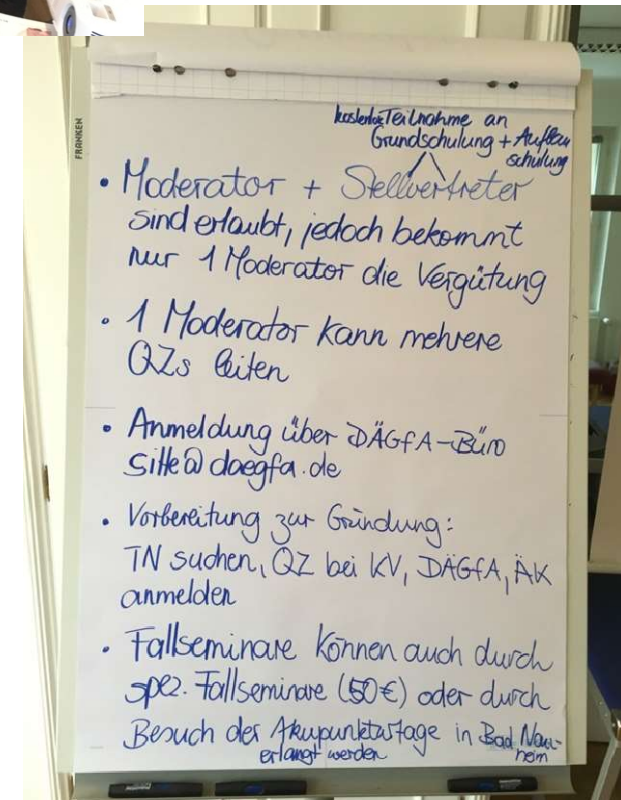 FRANKEN
kostenlose Teilnahme an
Grundschulung + Aufbau
schulung
• Moderator + Stellvertreter
sind erlaubt, jedoch bekommt
nur 1 Moderator die Vergütung
• 1 Moderator kann mehrere
QZs leiten
• Anmeldung über DÄGfA-Büro
Sitte@daegfa.de
• Vorbereitung zur Gründung:
TN suchen, QZ bei KV, DÄGfA, ÄK
anmelden
• Fallseminare können auch durch
spez. Fallseminare (50€) oder durch
Besuch der Akupunkturtage in Bad Nau-
heim
erlangt werden